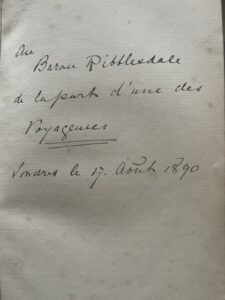 Au
Baron Ribblesdale
de la part d'une des
Voyageuses
Londres le 17. Août 1890